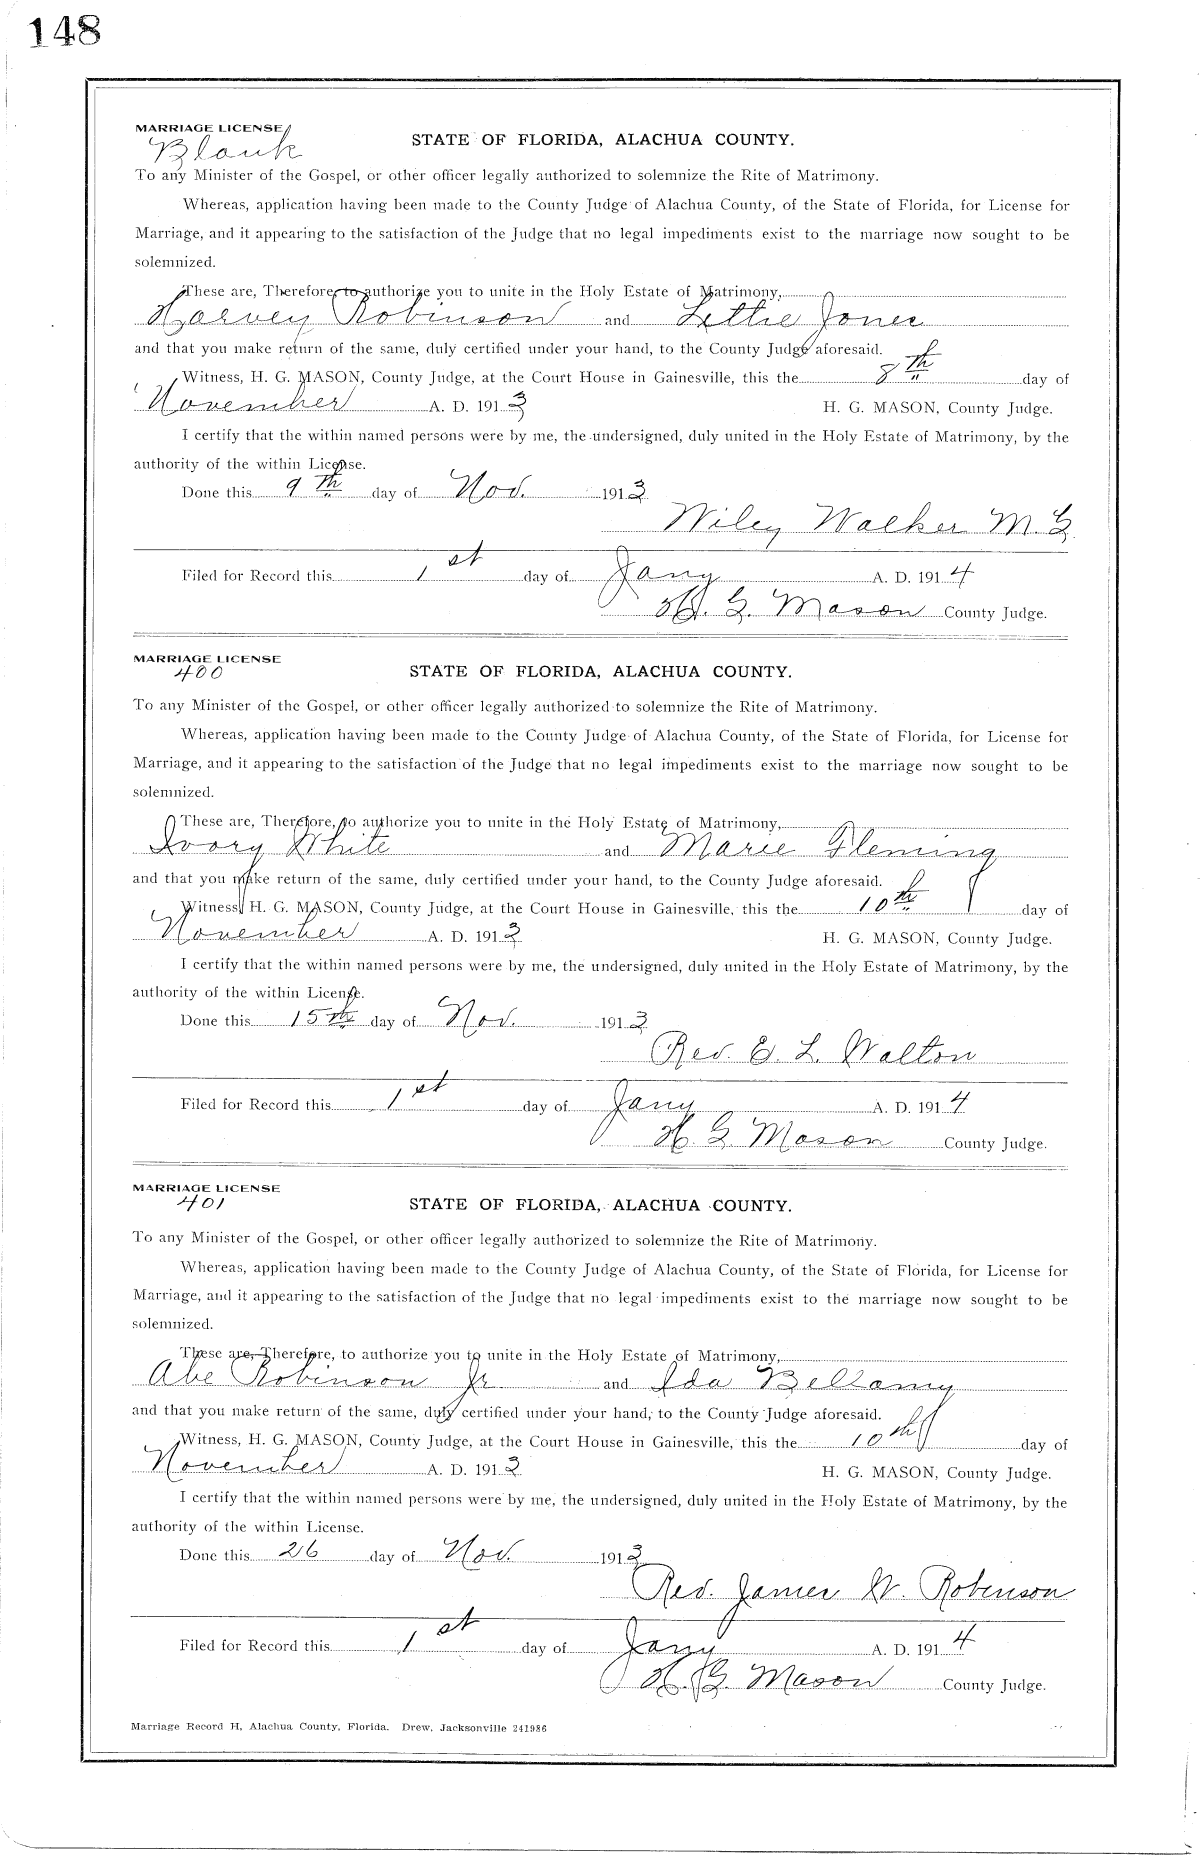 148
MARRIAGE LICENSE
Blank
STATE OF FLORIDA, ALACHUA COUNTY.
To any Minister of the Gospel, or other officer legally authorized to solemnize the Rite of Matrimony.
Whereas, application having been made to the County Judge of Alachua County, of the State of Florida, for License for
Marriage, and it appearing to the satisfaction of the Judge that no legal impediments exist to the marriage now sought to be
solemnized.
These are, Therefore, to authorize you to unite in the Holy Estate of Matrimony,
Harvey Robinson and Lettie Jones
and that you make return of the same, duly certified under your hand, to the County Judge aforesaid.
Witness, H. G. MASON, County Judge, at the Court House in Gainesville, this the 8th day of
November A. D. 1913 H. G. MASON, County Judge.
I certify that the within named persons were by me, the undersigned, duly united in the Holy Estate of Matrimony, by the
authority of the within License.
Done this 9th day of Nov. 1913
Wiley Walker M. G
Filed for Record this 1st day of Jany A. D. 1914
H. G. Mason County Judge.
MARRIAGE LICENSE
400
STATE OF FLORIDA, ALACHUA COUNTY.
To any Minister of the Gospel, or other officer legally authorized to solemnize the Rite of Matrimony.
Whereas, application having been made to the County Judge of Alachua County, of the State of Florida, for License for
Marriage, and it appearing to the satisfaction of the Judge that no legal impediments exist to the marriage now sought to be
solemnized.
These are, Therefore, to authorize you to unite in the Holy Estate of Matrimony,
Ivory White and Marie Fleming
and that you make return of the same, duly certified under your hand, to the County Judge aforesaid.
Witness, H. G. MASON, County Judge, at the Court House in Gainesville, this the 10th day of
November A. D. 1913 H. G. MASON, County Judge.
I certify that the within named persons were by me, the undersigned, duly united in the Holy Estate of Matrimony, by the
authority of the within License.
Done this 15th day of Nov. 1913
Rev. E. L. Walton
Filed for Record this 1st day of Jany A. D. 1914
H. G Mason County Judge.
MARRIAGE LICENSE
401
STATE OF FLORIDA, ALACHUA COUNTY.
To any Minister of the Gospel, or other officer legally authorized to solemnize the Rite of Matrimony.
Whereas, application having been made to the County Judge of Alachua County, of the State of Florida, for License for
Marriage, and it appearing to the satisfaction of the Judge that no legal impediments exist to the marriage now sought to be
solemnized.
These are, Therefore, to authorize you to unite in the Holy Estate of Matrimony,
Abe Robinson Jr and Ida Bellamy
and that you make return of the same, duly certified under your hand, to the County Judge aforesaid.
Witness, H. G. MASON, County Judge, at the Court House in Gainesville, this the 10th day of
November A. D. 1913 H. G. MASON, County Judge.
I certify that the within named persons were by me, the undersigned, duly united in the Holy Estate of Matrimony, by the
authority of the within License.
Done this 26 day of Nov. 1913
Rev. James W. Robinson
Filed for Record this 1st day of Jany A. D. 1914
H. G. Mason County Judge.
Marriage Record H, Alachua County, Florida. Drew, Jacksonville 241986